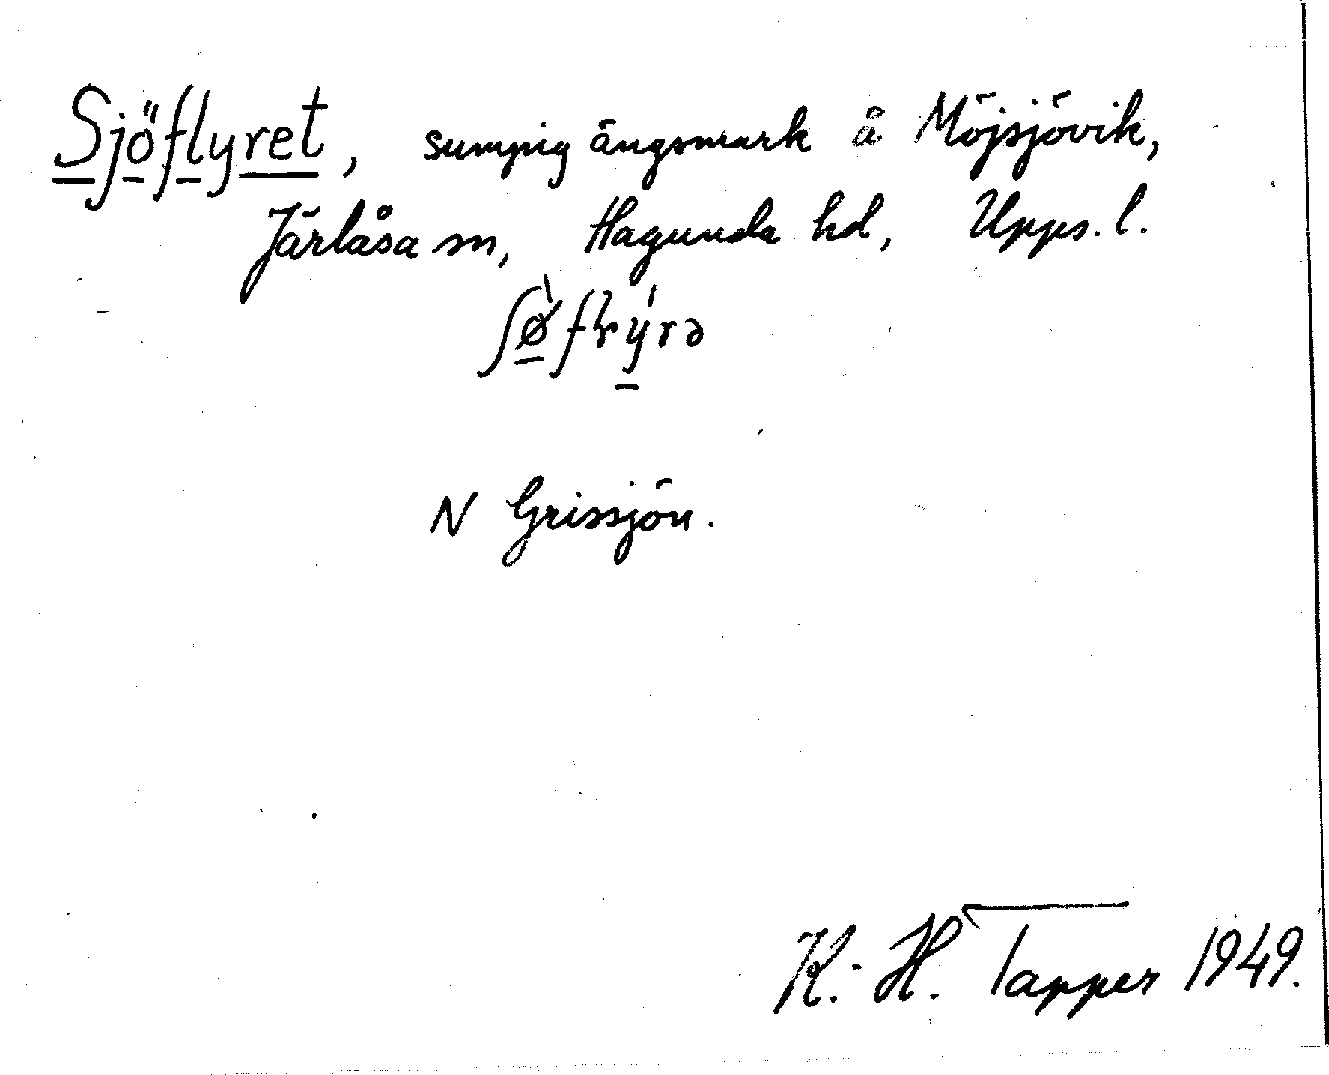 Sjöflyret, sumpig ängsmark å Möjsjövik,
Järlåsa sn, Hagunda hd, Upps. l.
N Grissjön.
K.-H. Tapper 1949.